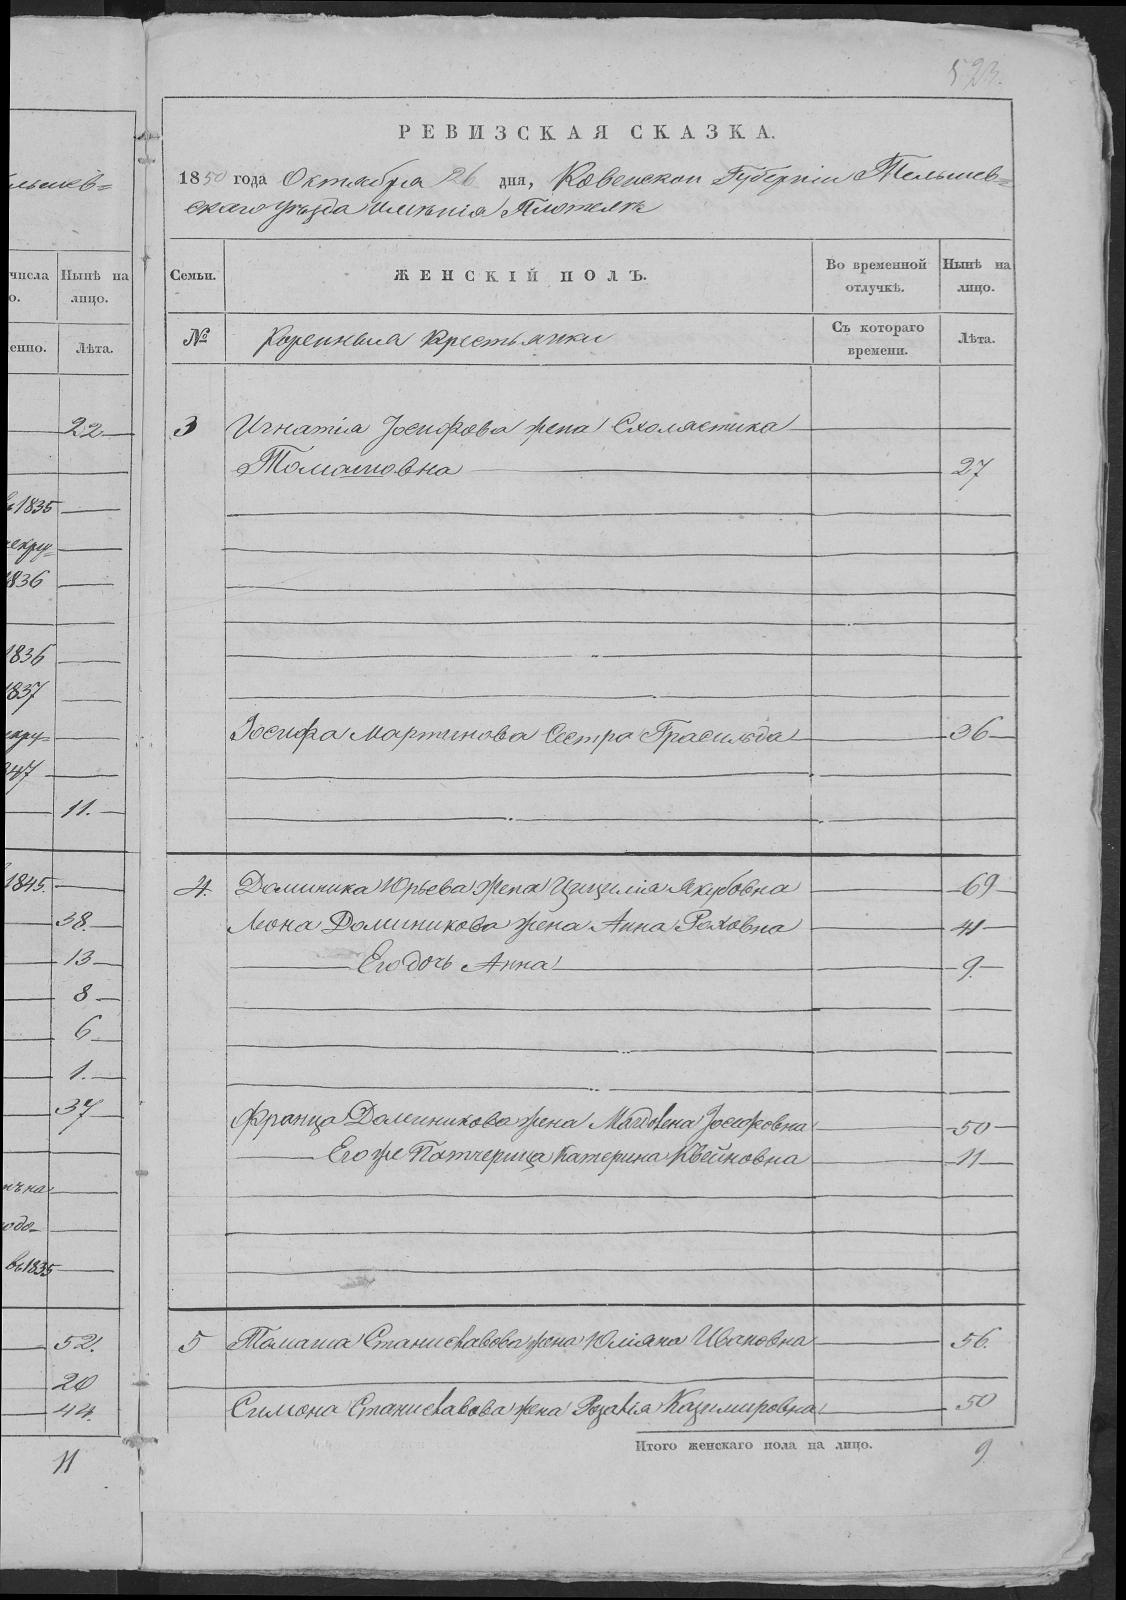 523.
РЕВИЗСКАЯ СКАЗКА.
1850 года Октября 26 дня, Ковенской Губернiи Тельшев=
скаго уѣзда имѣнiя Плотелъ
Семьи.
ЖЕНСКІЙ ПОЛЪ.
Во временной отлучкѣ.
Нынѣ на лицо.
№
Коренныя Крестьянки
Съ котораго времени.
Лѣта.
3 Игнатiя Iосифова жена Схоластика
Томашовна 27
Iосифа Мартинова Сестра Грасильда 36
4. Доминика Юрьева жена Цицилiя Якубовна 69
Леона Доминикова жена Анна Роховна 41
Его дочь Анна 9.
Франца Доминикова жена Магдалена Iосифовна 50
Его же Патчерица Катерина Квейновна 11
5 Томаша Станиславова жена Юлiяна Ивановна 56.
Симона Станиславова жена Розалiя Казимировна 50
Итого женскаго пола на лицо. 9
льшев=
числа
Нынѣ на
лицо.
енно.
Лѣта.
22
1835
екру=
1836
1836
1837
847
11.
1845.
38.
13
8
6
1.
37
въ 1835
52.
20
44.
11